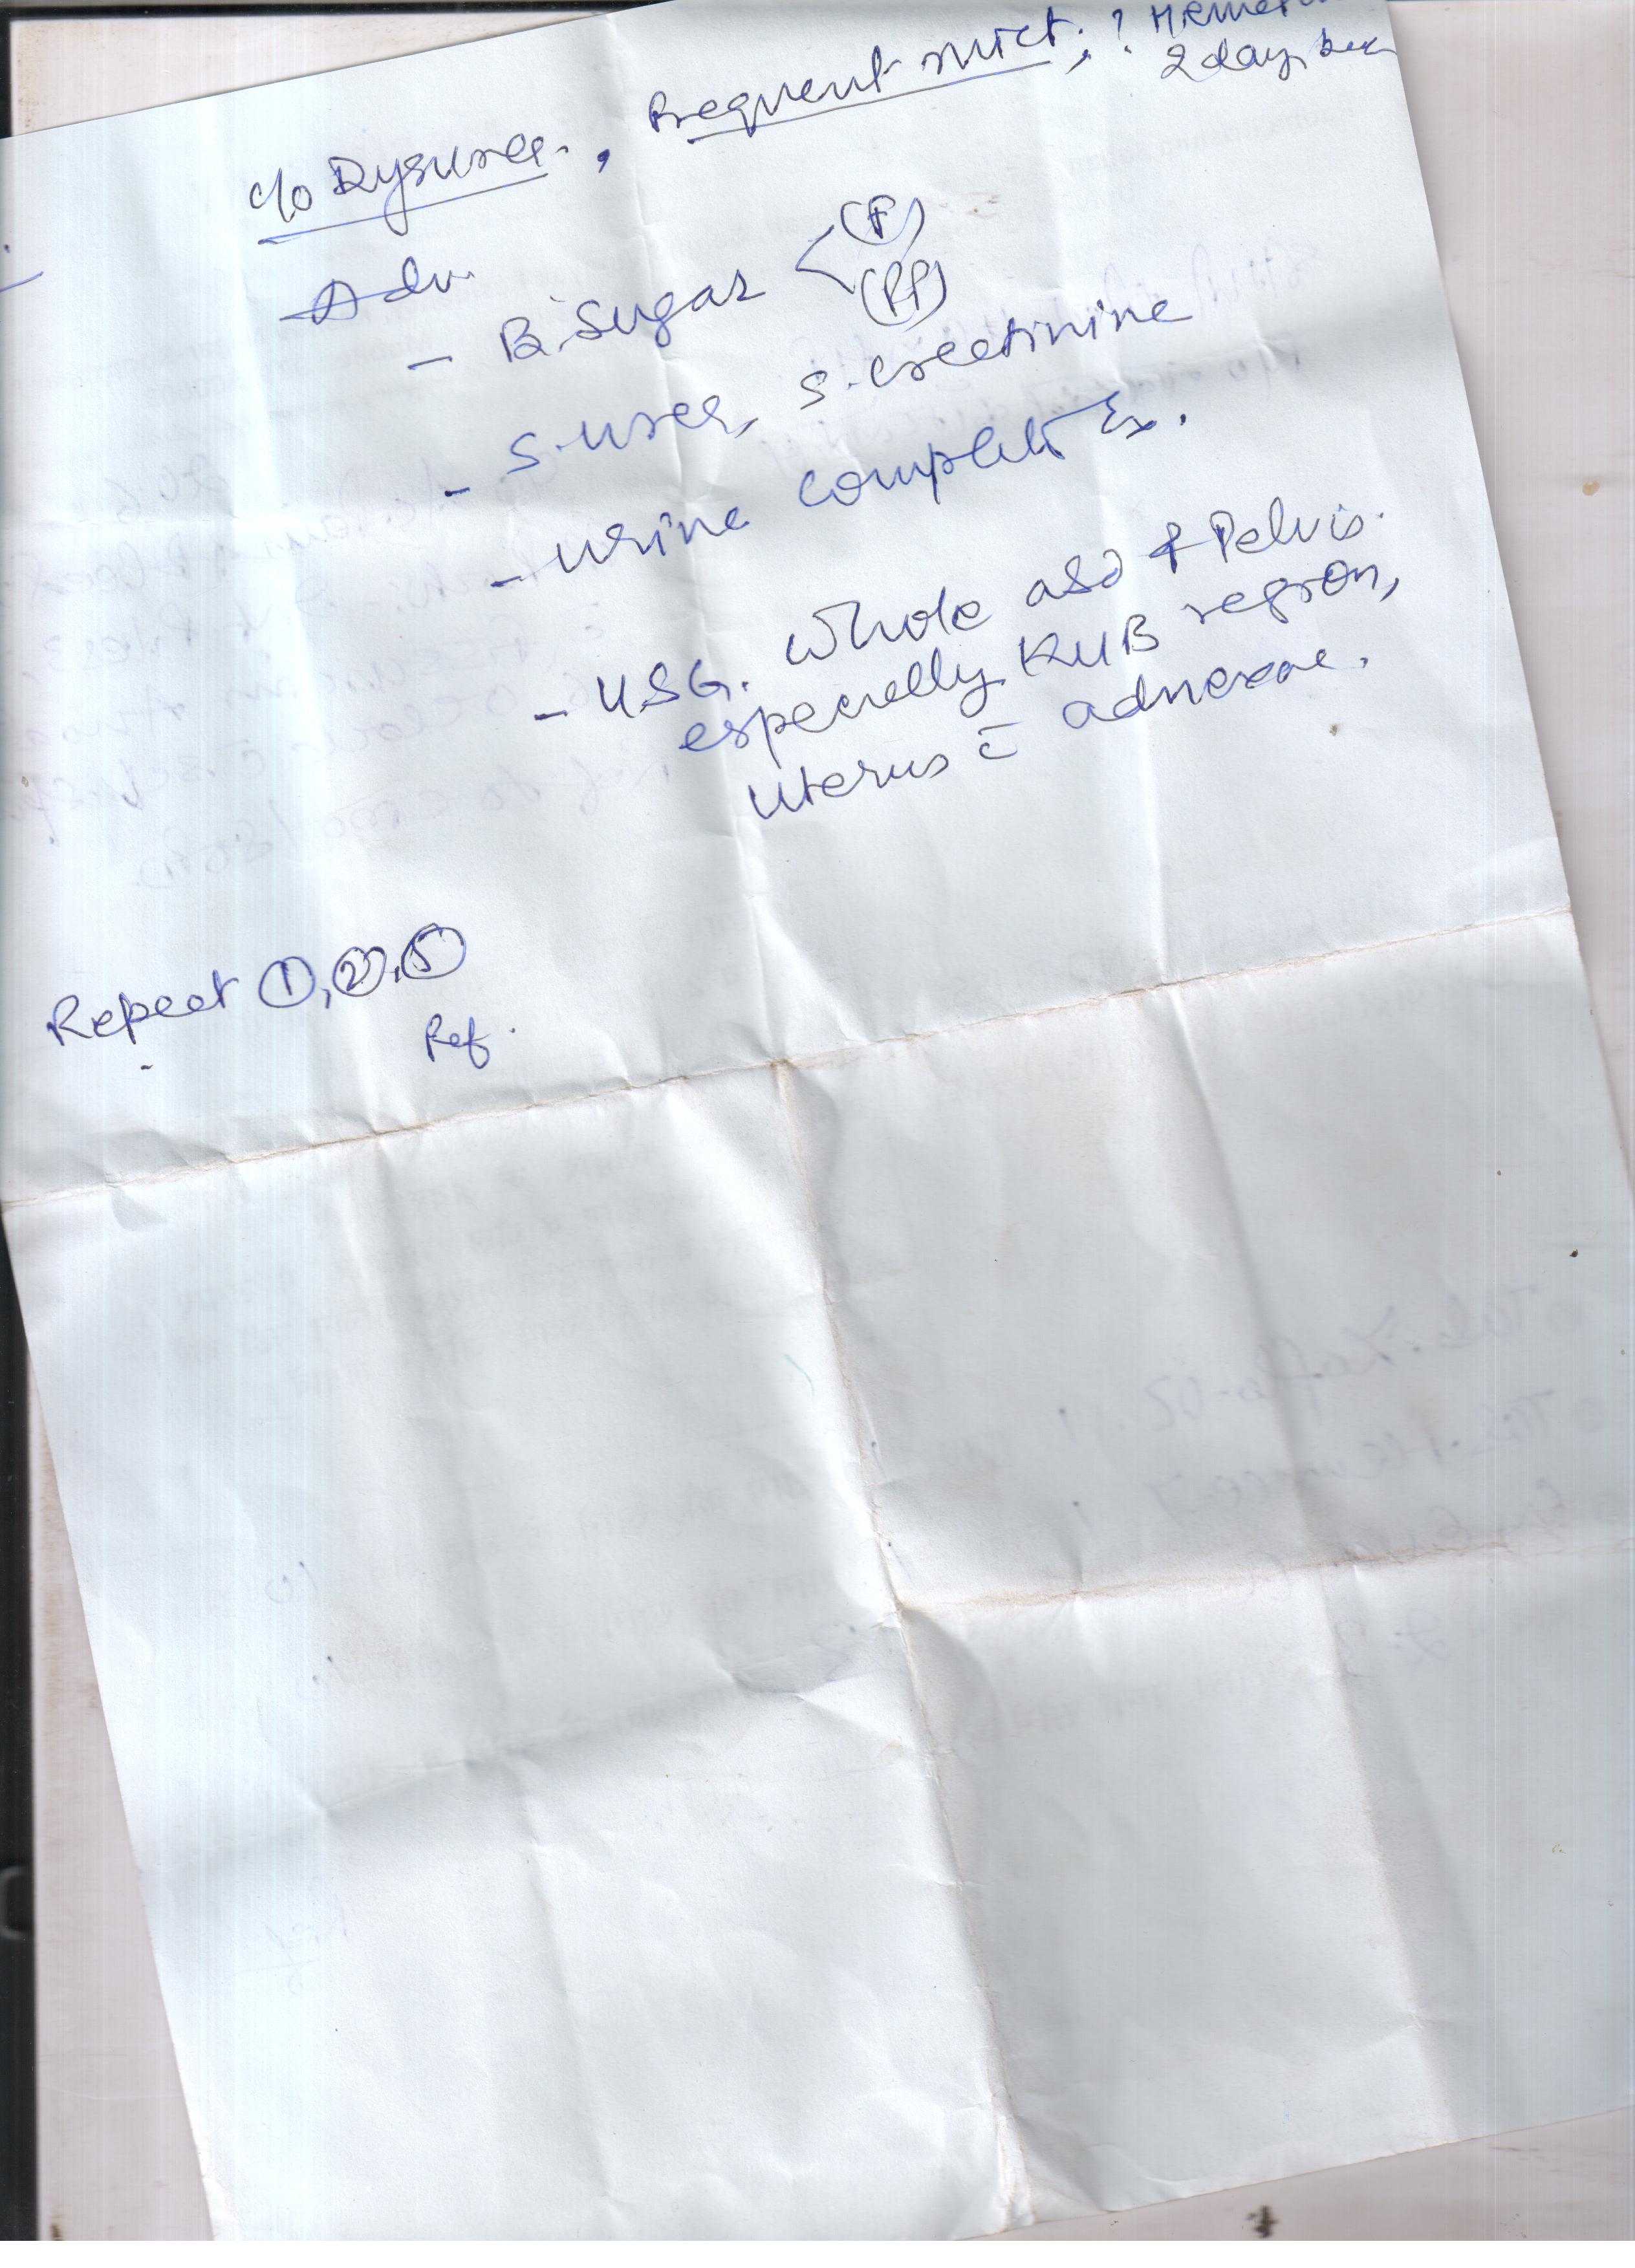 c/o Dysurea, Frequent mict.; ?
2 day back
Adv.
- B. Sugar < (F)
(PP)
- S. urea, S. creatinine
- urine complete Ex.
- USG. Whole abd & Pelvis.
especially KUB region,
Uterus c̄ adnexae.
Repeat ①, ②, ⑤
Ref.